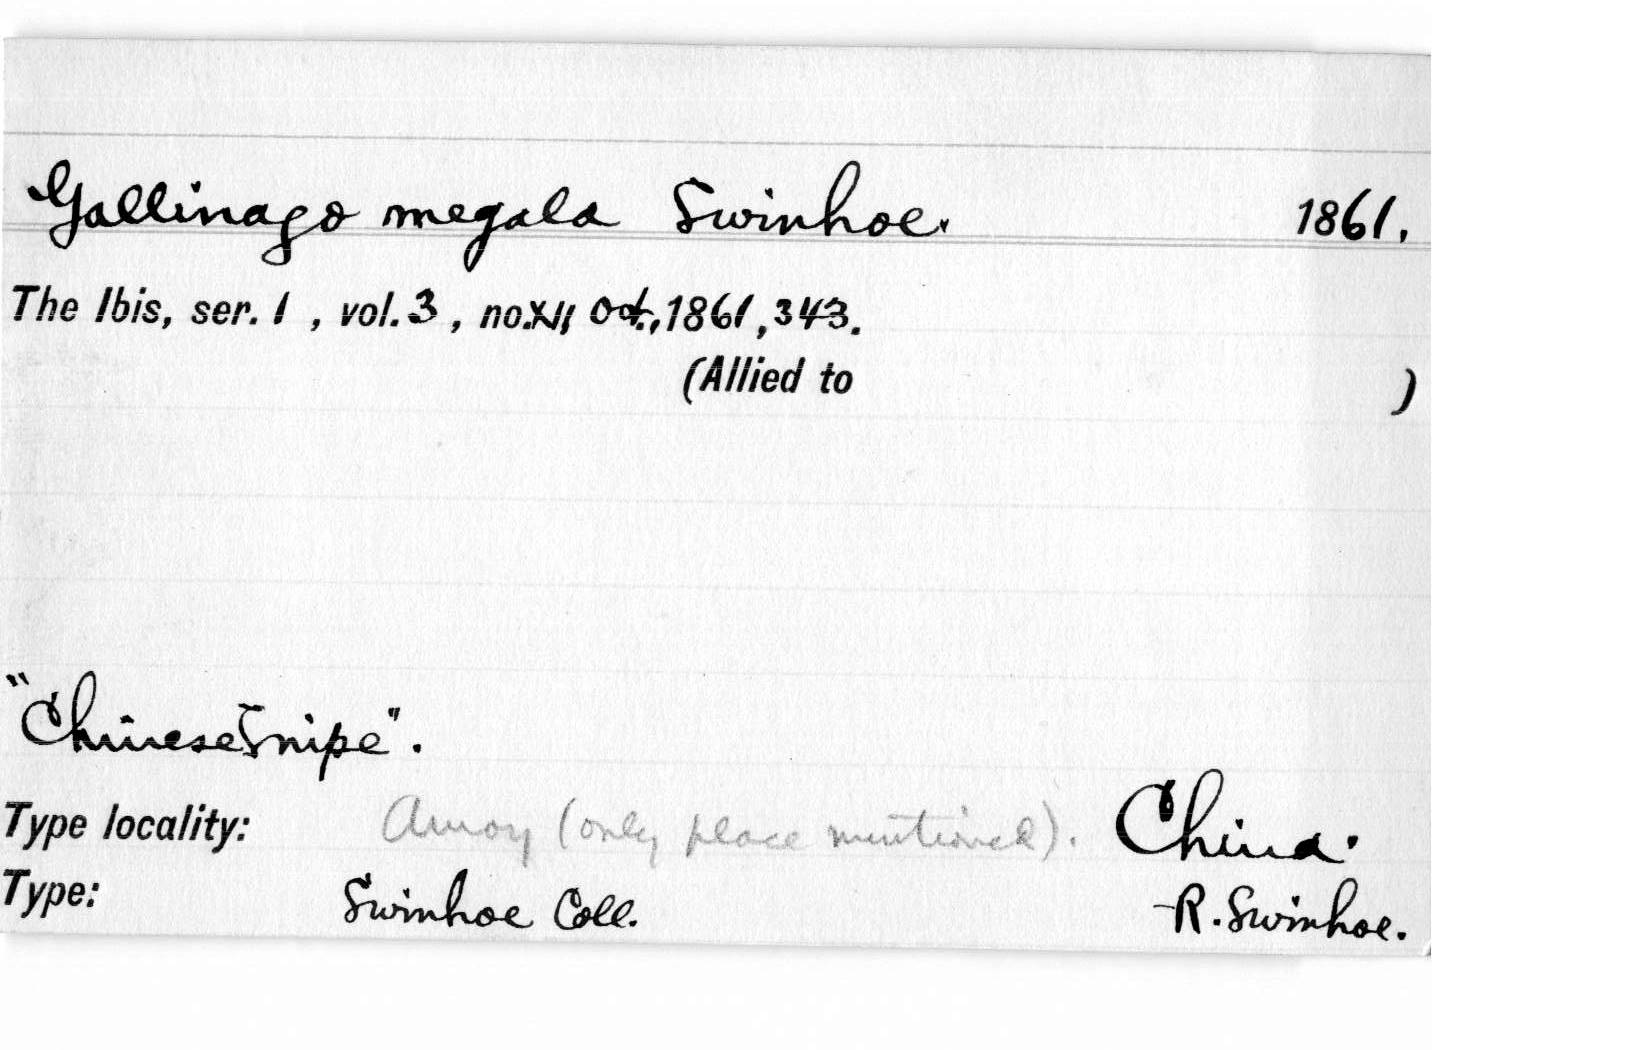 Gallinago megala Swinhoe. 1861.
The Ibis, ser. 1, vol. 3, no. XII, Oct., 1861, 343.
(Allied to )
"Chinese Snipe".
Type locality: Amoy (only place mentioned). China.
Type: Swinhoe Coll. R. Swinhoe.